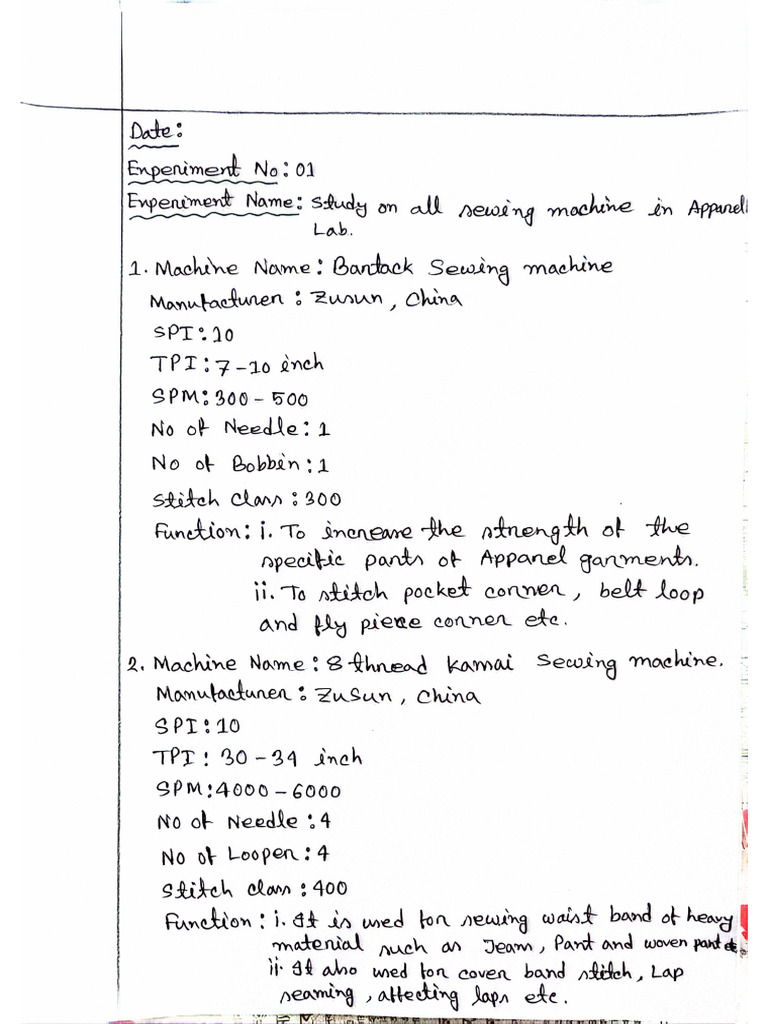 Date:
Experiment No: 01
Experiment Name: Study on all sewing machine in Apparel
Lab.
1. Machine Name: Bartack Sewing machine
Manufacturer: Zusun, China
SPI: 10
TPI: 7-10 inch
SPM: 300 - 500
No of Needle: 1
No of Bobbin: 1
Stitch Class: 300
Function: i. To increase the strength of the
specific parts of Apparel garments.
ii. To stitch pocket corner, belt loop
and fly piece corner etc.
2. Machine Name: 8 thread Kamai Sewing machine.
Manufacturer: ZuSun, China
SPI: 10
TPI: 30-34 inch
SPM: 4000-6000
No of Needle: 4
No of Looper: 4
Stitch class: 400
Function: i. It is used for sewing waist band of heavy
material such as Jeam, Pant and woven pant etc.
ii. It also used for cover band stitch, Lap
seaming, affecting laps etc.